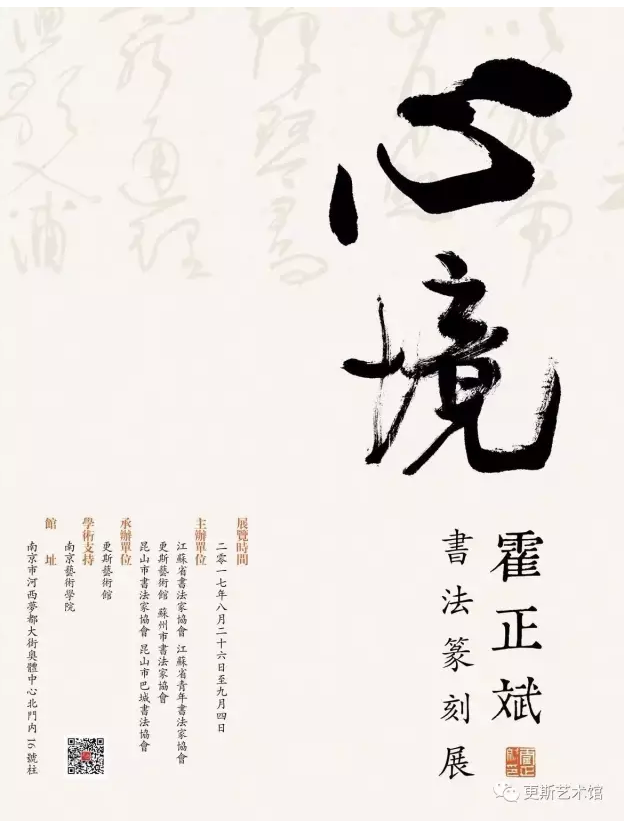 心境
霍正斌
書法篆刻展
展覽時間
二零一七年八月二十六日至九月四日
主辦單位
江蘇省書法家協會 江蘇省青年書法家協會
更斯藝術館 蘇州市書法家協會
昆山市書法家協會 昆山市巴城書法協會
承辦單位
更斯藝術館
學術支持
南京藝術學院
館 址
南京市河西夢都大街奧體中心北門内16號柱
更斯艺术馆